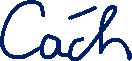 Cách